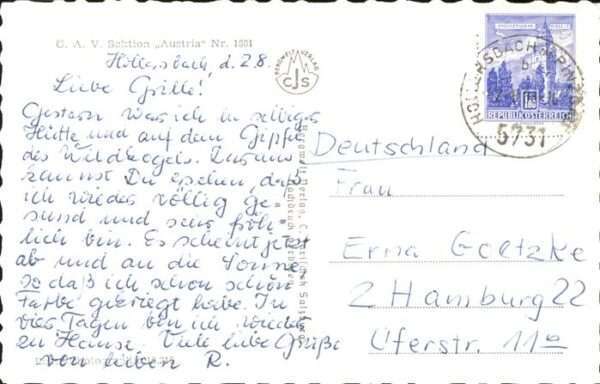 Ö. A. V. Sektion „Austria" Nr. 1581
Hollersbach d. 2.8.
Liebe Grille!
Gestern war ich in selbiger
Hütte und auf dem Gipfel
des Wildkogels. Daraus
kannst Du ersehen, daß
ich wieder völlig ge
sund und sehr fröh-
lich bin. Es scheint jetzt
ab und an die Sonne
so daß ich schon schön
Farbe gekriegt habe. In
vier Tagen bin ich wieder
zu Hause. Viele liebe Grüße
von
R.
CJS
REPUBLIK ÖSTERREICH
5731
Deutschland
Frau
Erna Goltzke
2 Hamburg 22
Uferstr. 11